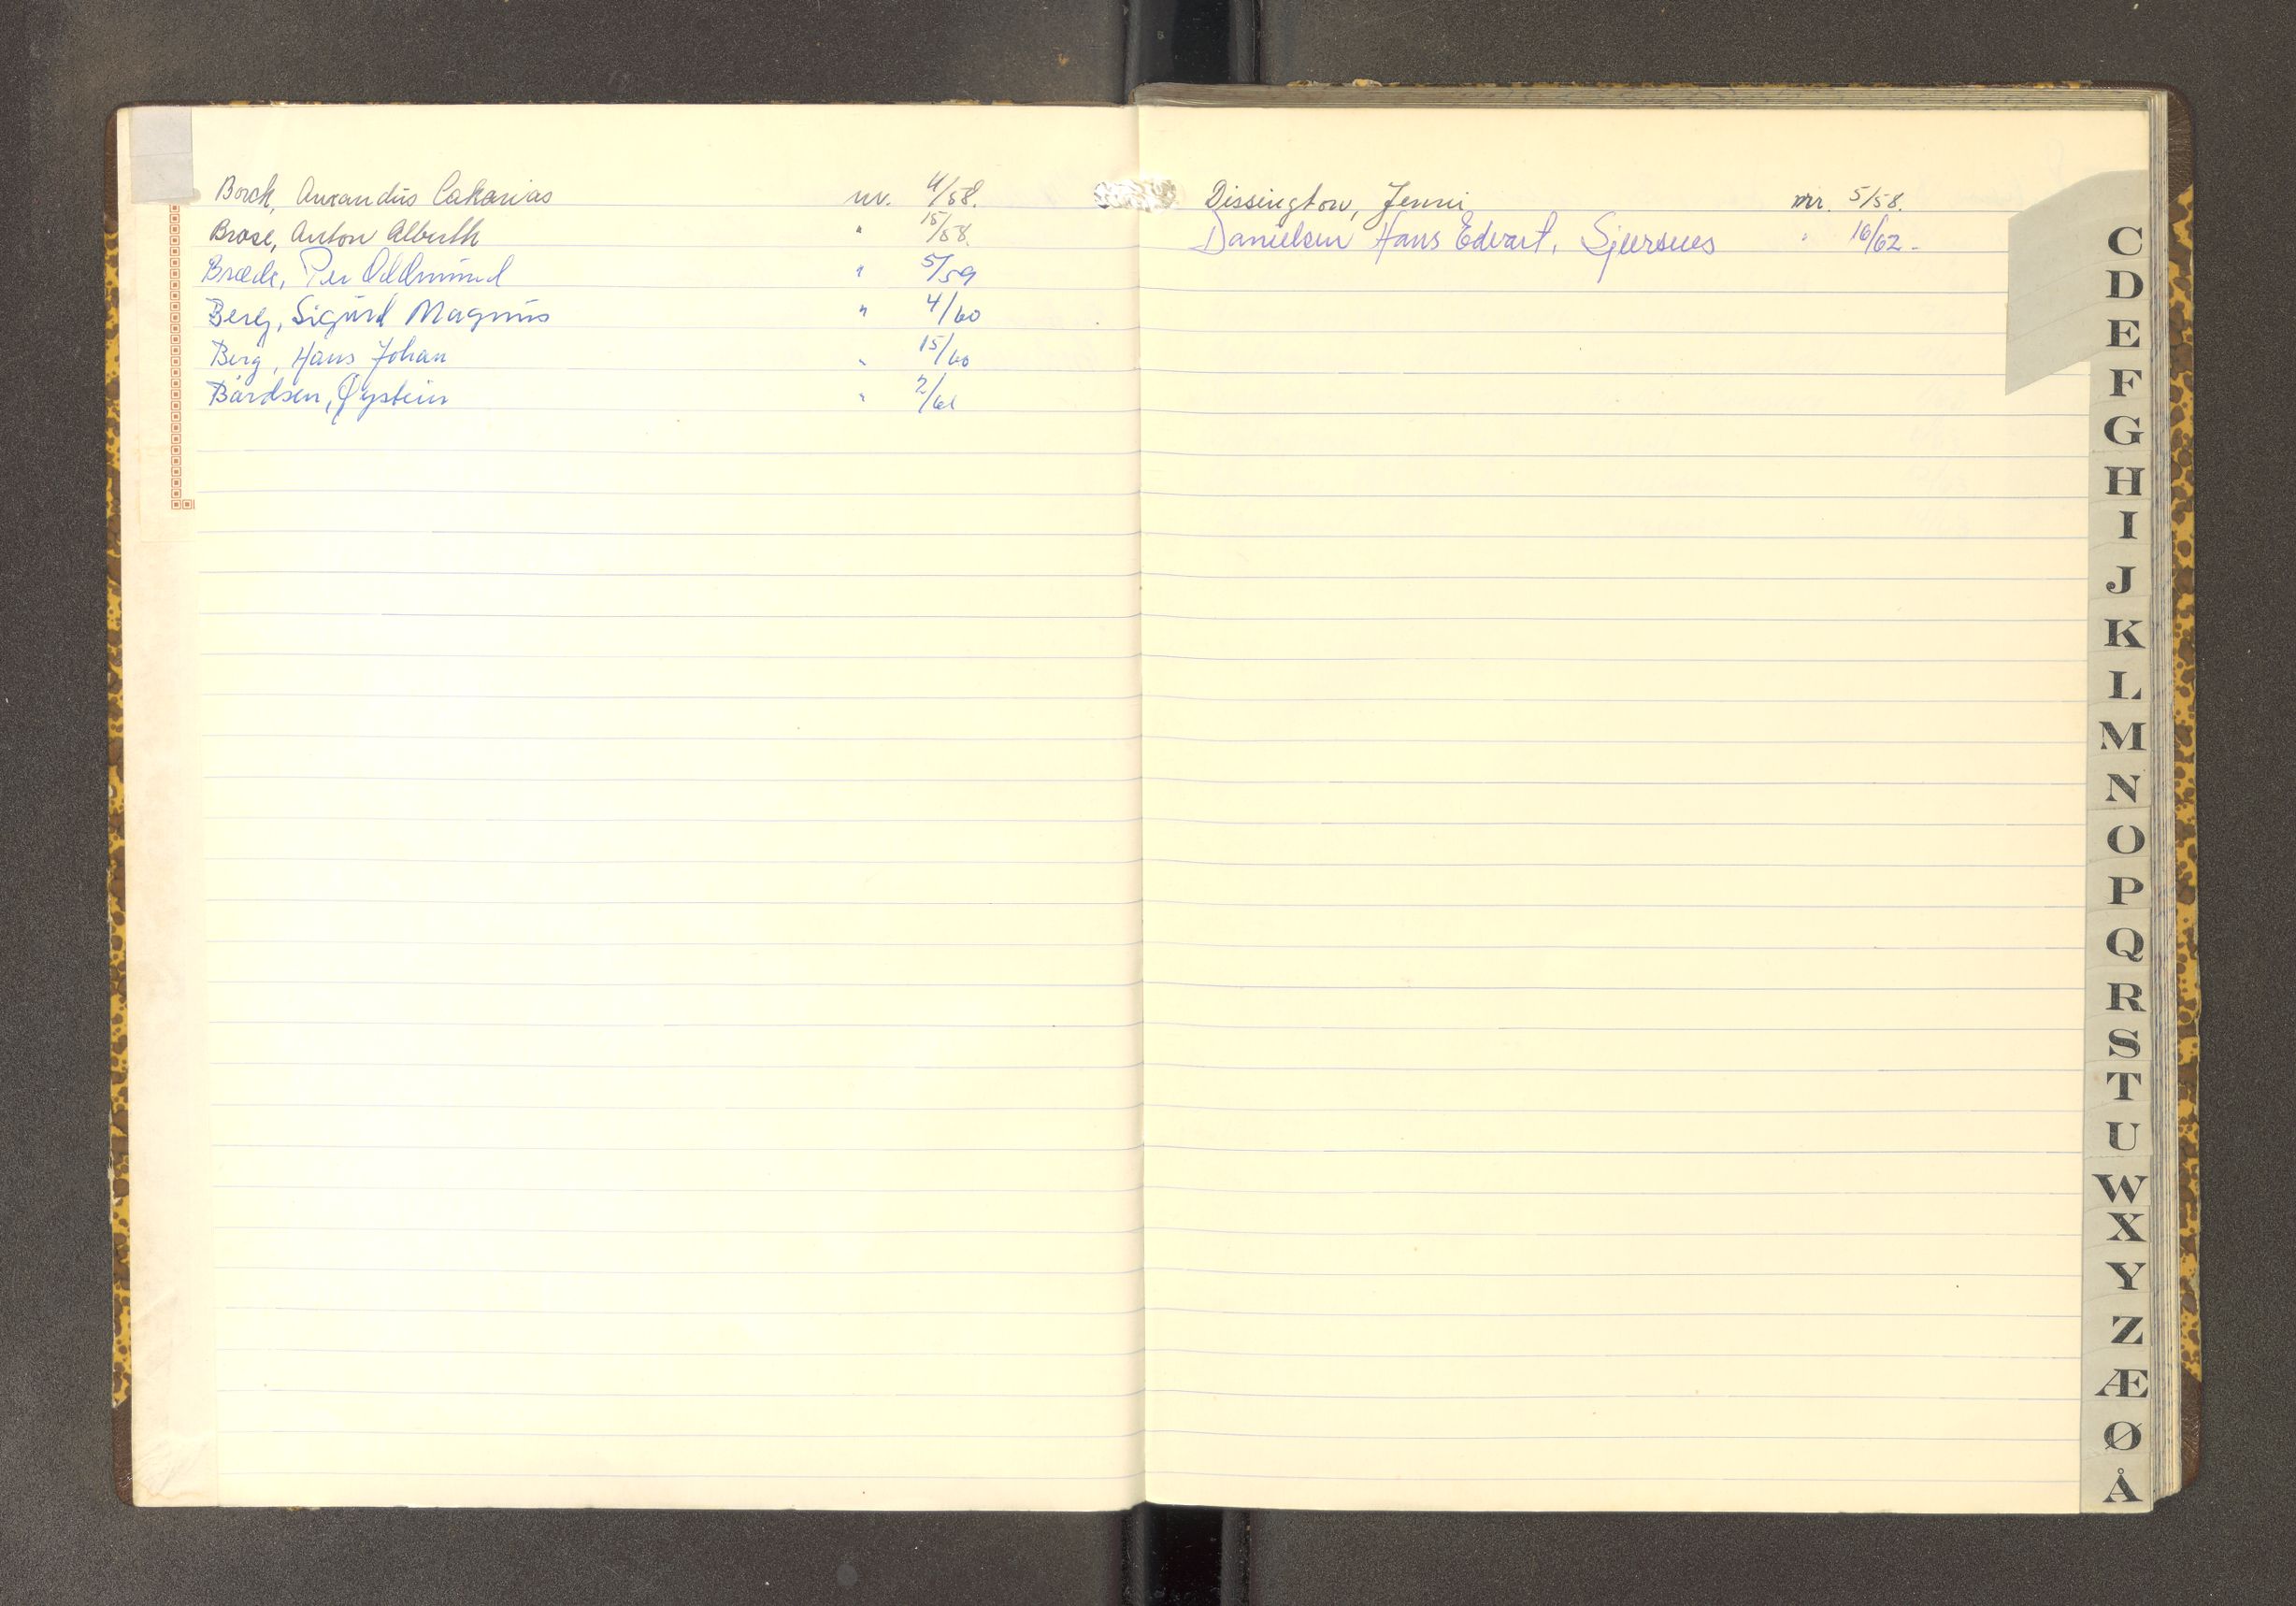 Borch, Amandus Cakarias nr. 4/58.
Brose, Anton Alberth " 15/58.
Brede, Per Oddmund " 5/59
Berg, Sigurd Magnus " 4/60
Berg, Hans Johan " 15/60
Bårdsen, Øystein " 2/61
Dissington, Jenni nr. 5/58.
Danielsen Hans Edvart, " 16/62-
C
D
E
F
G
H
I
J
K
L
M
N
O
P
Q
R
S
T
U
W
X
Y
Z
Æ
Ø
Å